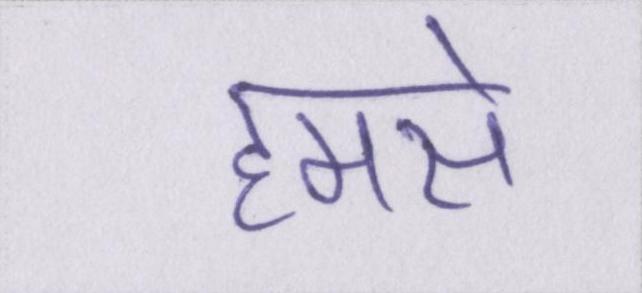 हमसे